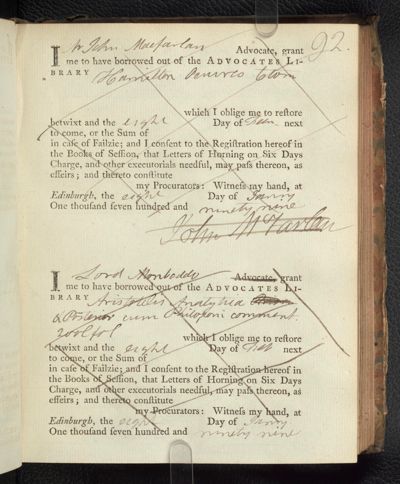 92.
I, Mr John Macfarlan Advocate, grant
me to have borrowed out of the ADVOCATES LI-
BRARY Hamilton
which I oblige me to reſtore
betwixt and the eight Day of next
to come, or the Sum of
in caſe of Failzie; and I conſent to the Regiſtration hereof in
the Books of Seſſion, that Letters of Horning on Six Days
Charge, and other executorials needful, may paſs thereon, as
effeirs; and thereto conſtitute
my Procurators: Witneſs my hand, at
Edinburgh, the eight Day of Janry
One thouſand ſeven hundred and ninety nine
John McFarlan
I, Lord Monboddo Advocate, grant
me to have borrowed out of the ADVOCATES LI-
BRARY Aristotelis Analytica
& Posterior cum Philoponi comment.
which I oblige me to reſtore
betwixt and the eight Day of Feb next
to come, or the Sum of
in caſe of Failzie; and I conſent to the Regiſtration hereof in
the Books of Seſſion, that Letters of Horning on Six Days
Charge, and other executorials needful, may paſs thereon, as
effeirs; and thereto conſtitute
my Procurators: Witneſs my hand, at
Edinburgh, the eight Day of Janry
One thouſand ſeven hundred and ninety nine